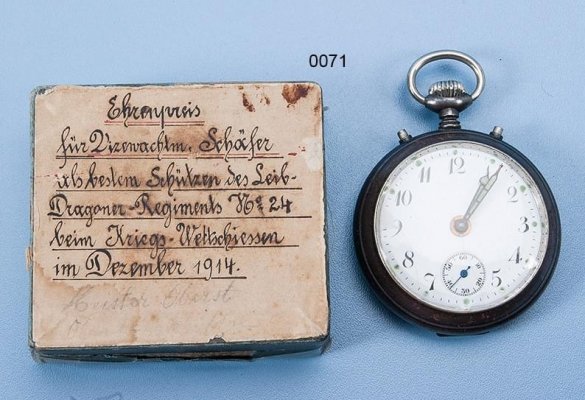 0071
Ehrenpreis
für Vizewachtm. Schäfer
als bestem Schützen des Leib-
Dragoner-Regiments No 24
beim Kriegs-Wettschiessen
im Dezember 1914.
12
1
2
3
4
5
7
8
9
10
11
60